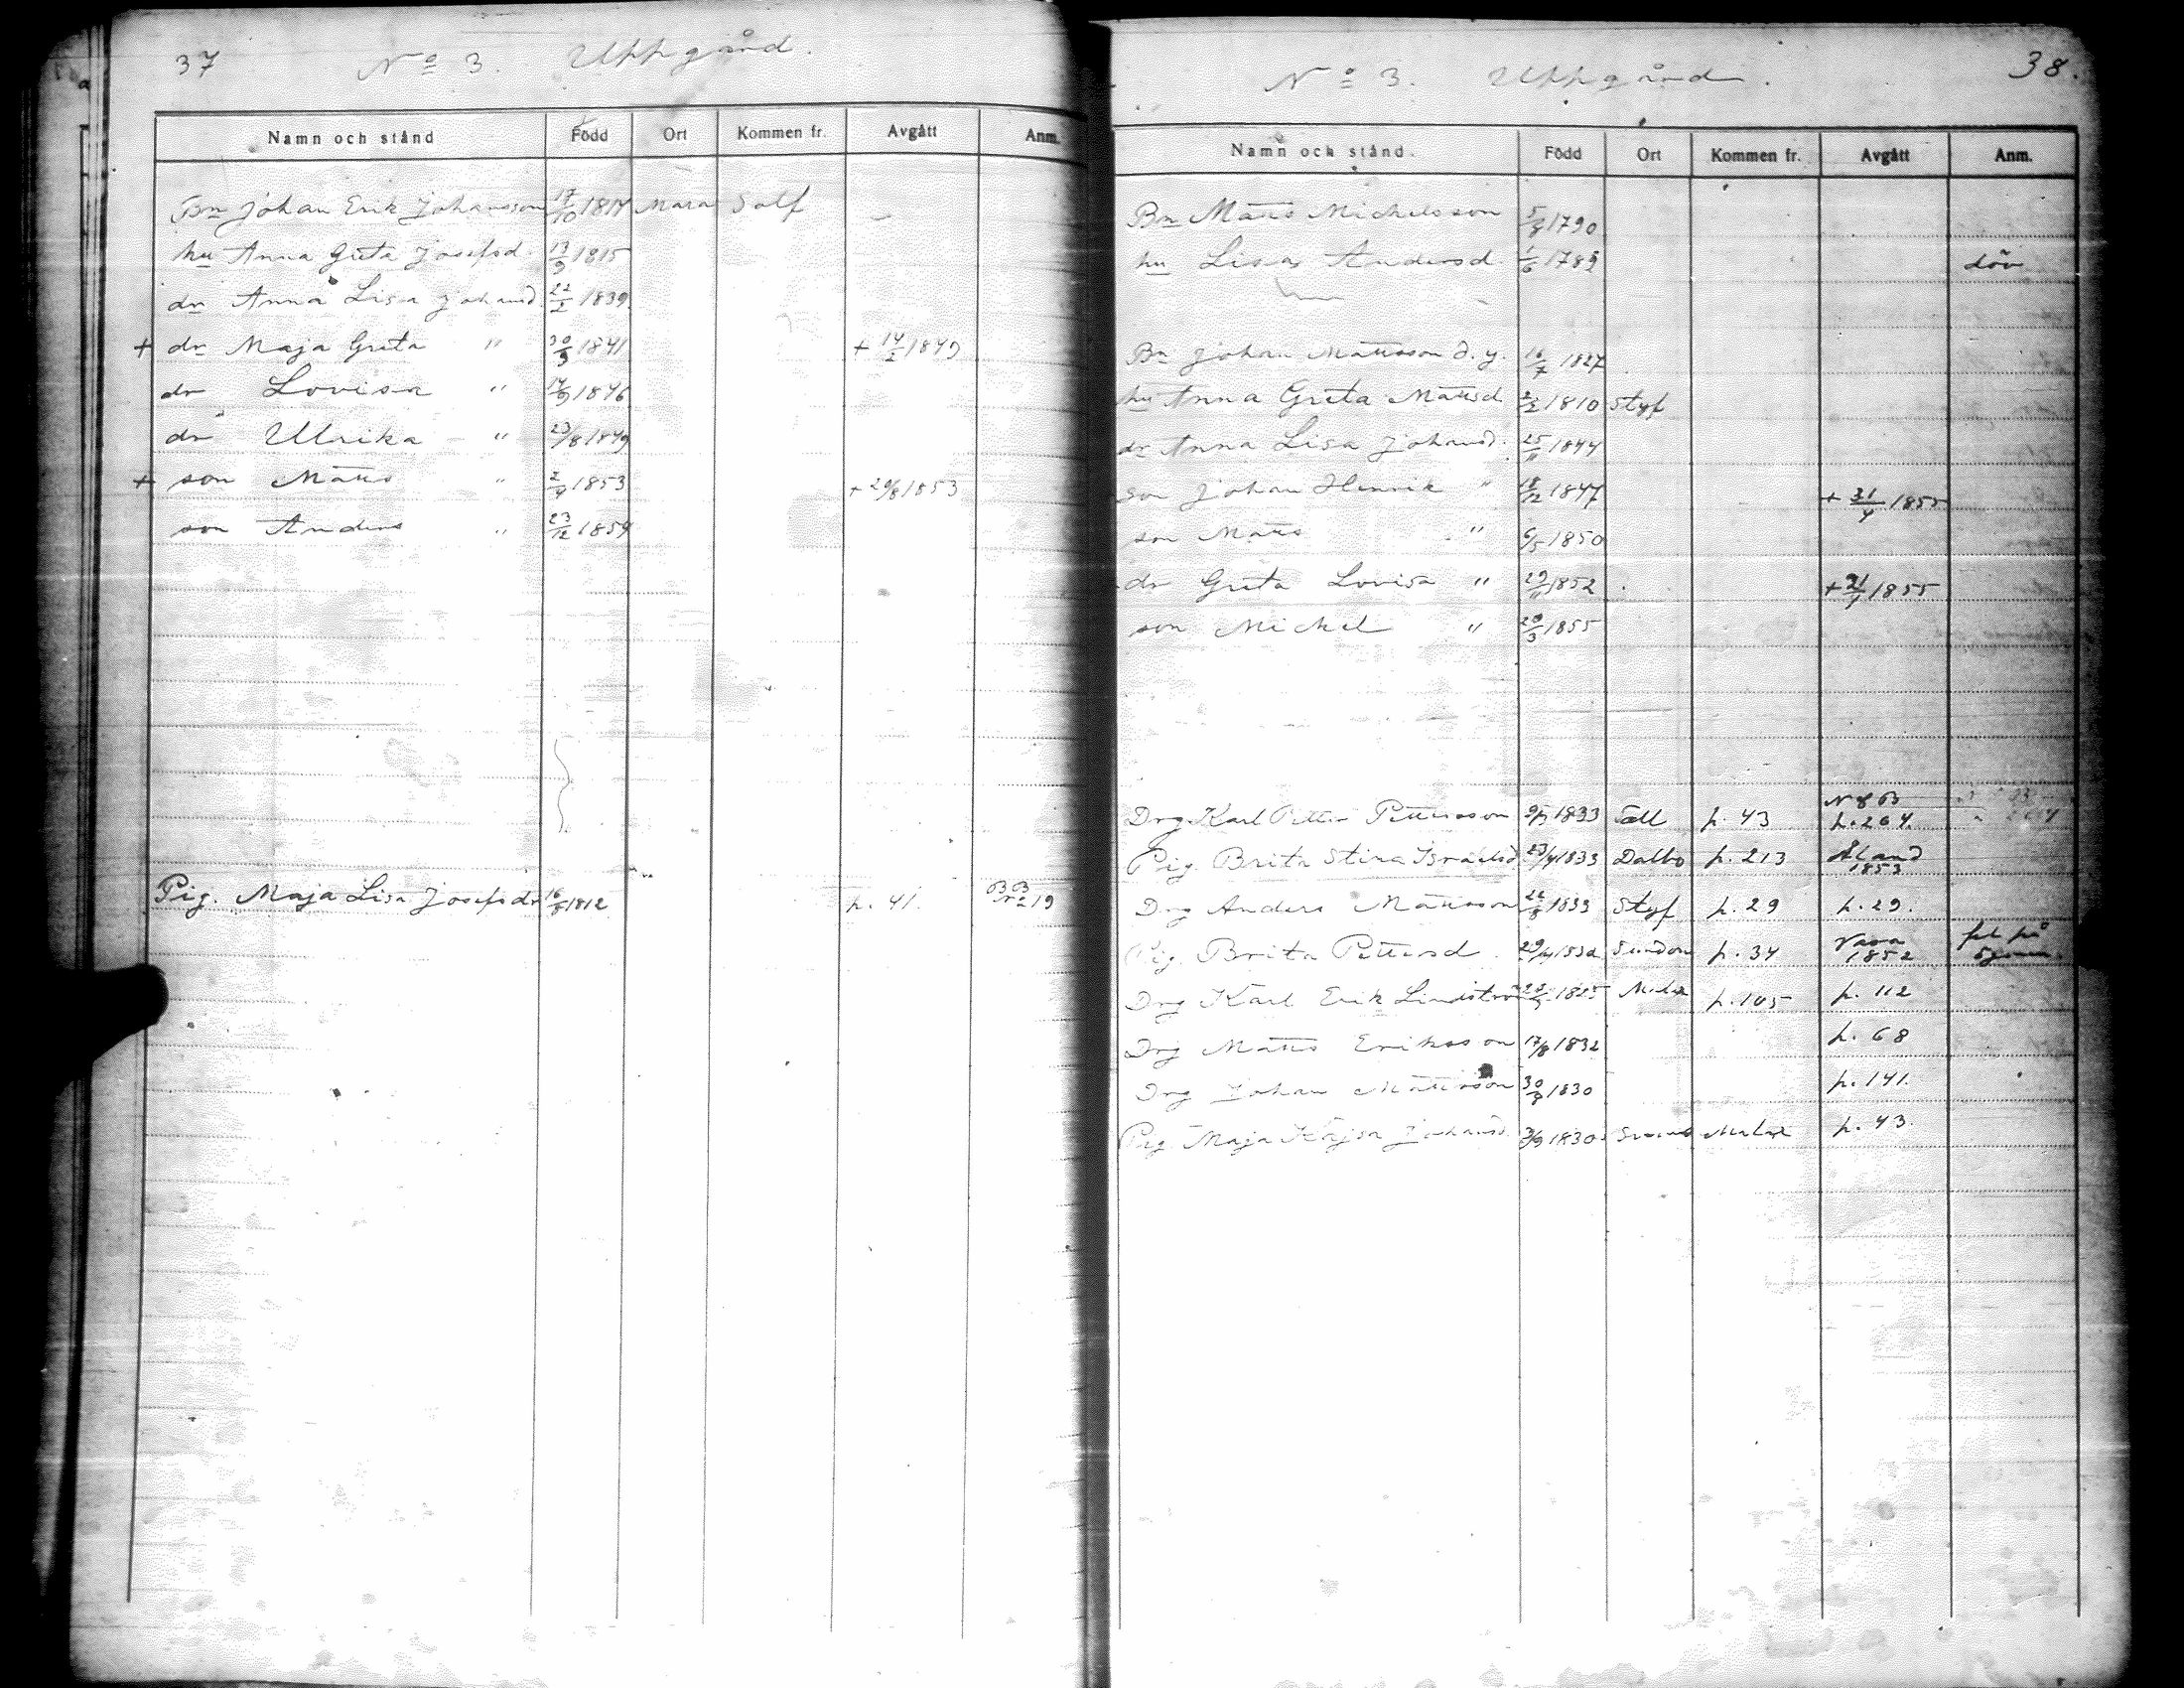 37 No 3. Uppgård.
Namn och stånd Född Ort Kommen fr. Avgått Anm.
Bn Johan Erik Johansson 17/10 1814 Mara Solf –
hu Anna Greta Josefsd. 13/9 1815
dr Anna Lisa Johansd. 22/2 1839
+ dr Maja Greta " 30/9 1841 + 14/2 1849
dr Lovisa " 14/9 1846
dr Ulrika " 23/8 1849
+ son Matts " 2/4 1853 + 20/8 1853
son Anders " 23/12 1854
Pig. Maja Lisa Josefsdr 16/8 1812 p. 41. BB No 19
No 3. Uppgård. 38.
Namn och stånd. Född Ort Kommen fr. Avgått Anm.
Bn Matts Michelsson 5/8 1790
hu Lisa Andersd. 1/6 1789 döv
Bn Johan Mattsson d.y. 16/7 1827
hu Anna Greta Mattsd. 2/2 1810 Styf
dr Anna Lisa Johansd. 25/11 1844
son Johan Henrik " 18/12 1847 + 31/4 1855
son Matts " 6/5 1850
dr Greta Lovisa " 29/11 1852 + 21/4 1855
son Michel " 20/3 1855
N 8 B
Drg Karl Petter Pettersson 1833 Töll p. 43 p. 264.
Pig. Brita Stina Israelsd. 23/4 1833 Dalbo p. 213 Åland 1853
Drg Anders Mattsson 22/8 1833 Styf p. 29 p. 29.
Pig. Brita Pettersd. 29/4 1832 Sundom p. 34 Vasa 1852
Drg Karl Erik Lindström 1825 Malax p. 105 p. 112
Drg Matts Eriksson 17/8 1832 p. 68
Drg Johan Mattsson 30/8 1830 p. 141.
Pig Maja Kajsa Johansd. 3/9 1830 Malax p. 43.